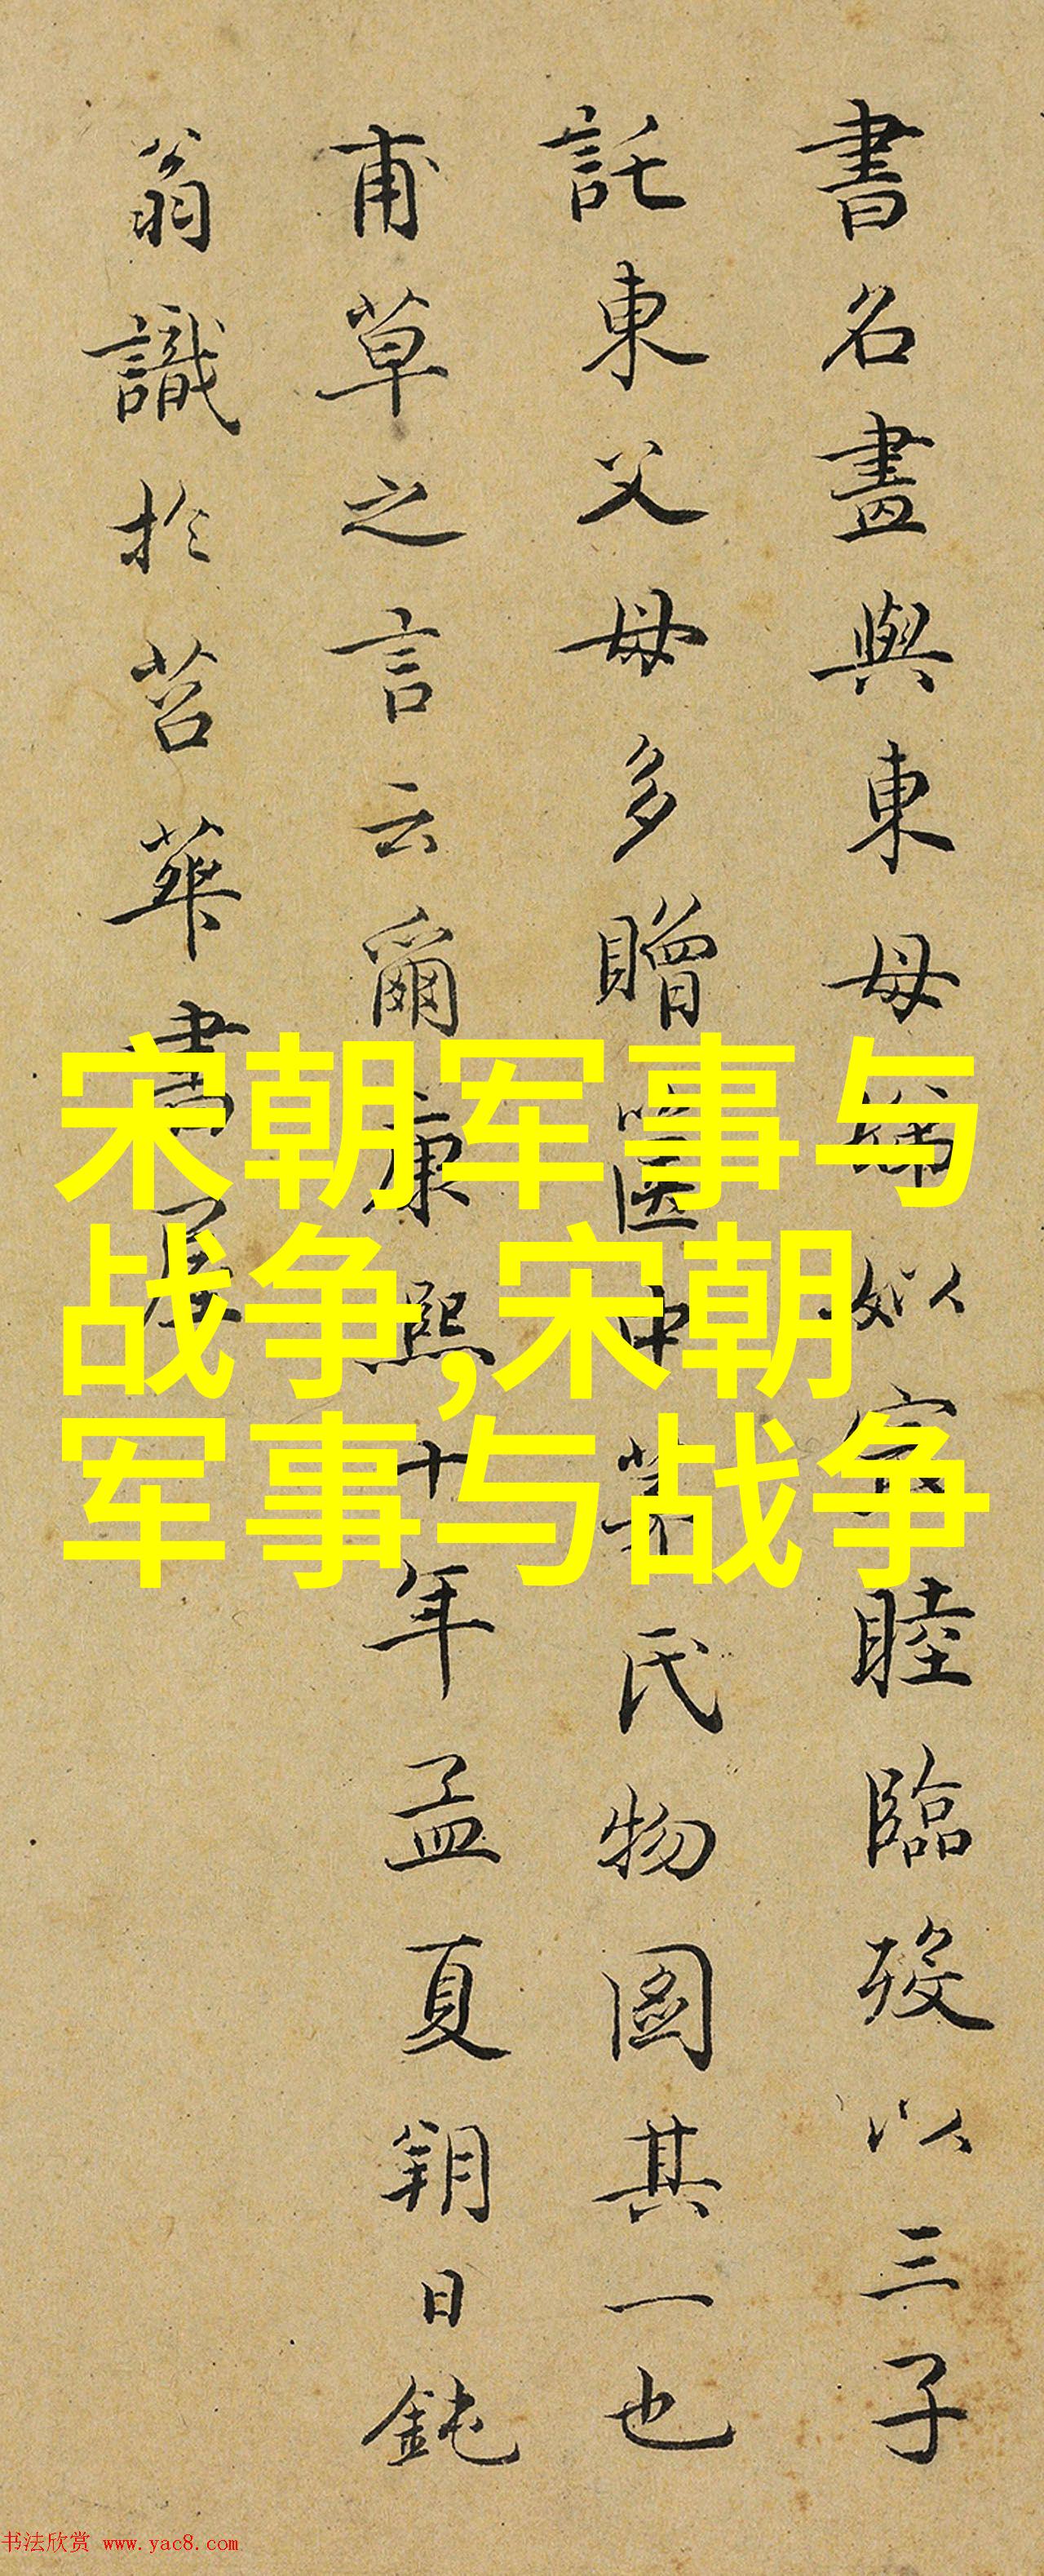 書名畫與東母㛮姒家睦臨歿以三子
託東父母多贈匳中業氏物圖其一也
甫草之言云爾康熙十年孟夏朔日鈍
翁識於苕華書屋
宋朝军事与
战争,宋朝
军事与战争
书法欣赏 www.yac8.com